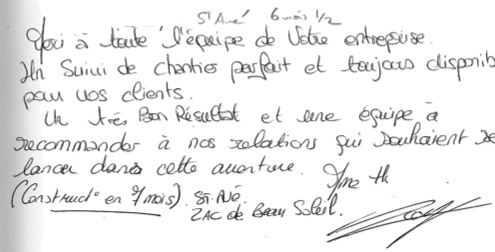 St Avé 6 mois 1/2
Merci à toute l'équipe de Votre entreprise.
Un Suivi de chantier parfait et toujours disponib
pour vos clients.
Un très Bon Résultat et une équipe à
recommander à nos relations qui souhaient se
lancer dans cette aventure.
(Construct° en 7 mois). St-Avé.
ZAC de Beau Soleil.